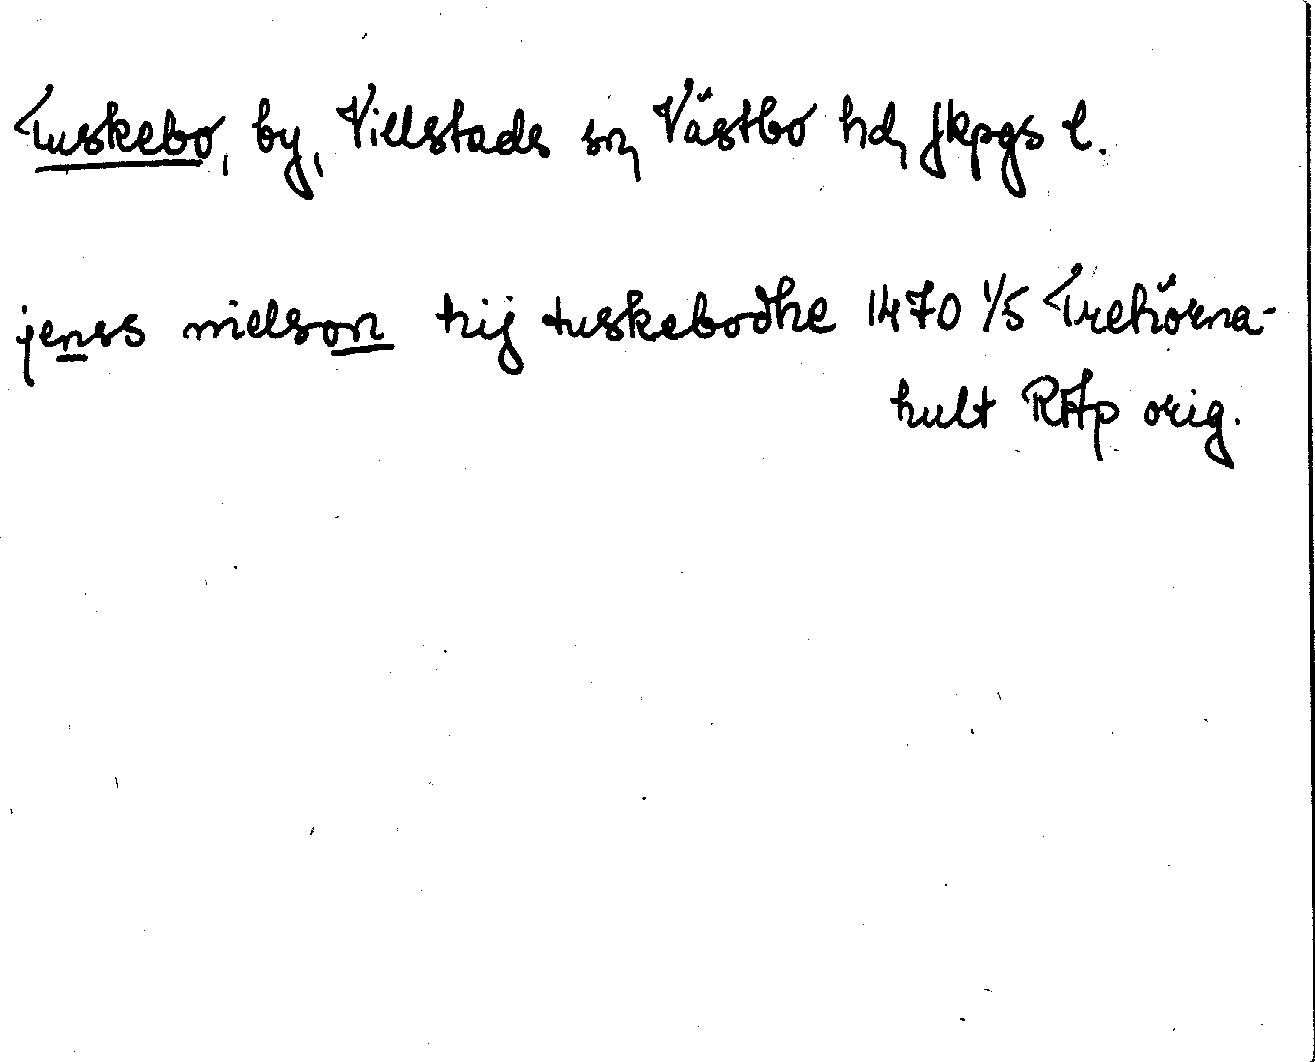 Tuskebo, by, Villstads sn, Västbo hd, Jkpgs l.
jenss nielson hij tuskebodhe 1470 1/5 Trehörna-
hult RAp orig.